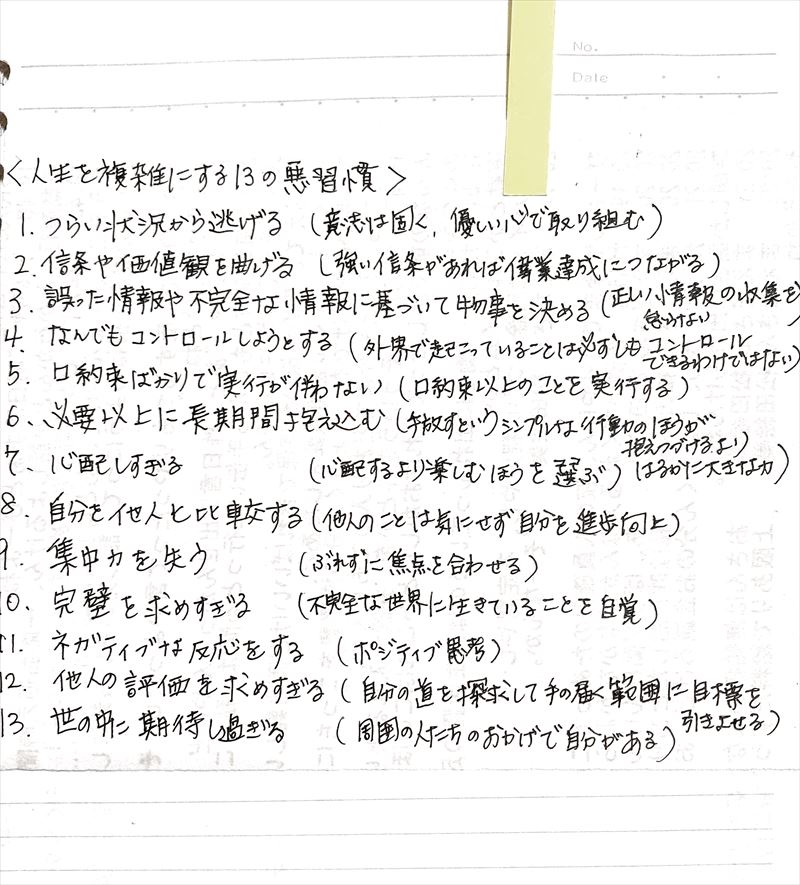 No.
Date
＜人生を複雑にする13の悪習慣＞
1. つらい状況から逃げる （意志は固く、優しい心で取り組む）
2. 信条や価値観を曲げる （強い信条があれば偉業達成につながる）
3. 誤った情報や不完全な情報に基づいて物事を決める （正しい情報の収集を
怠らない）
4. なんでもコントロールしようとする （外界で起こっていることは必ずしもコントロール
できるわけではない）
5. 口約束ばかりで実行が伴わない （口約束以上のことを実行する）
6. 必要以上に長期間抱え込む （手放すというシンプルな行動のほうが
抱えつづけるより
はるかに大きな力）
7. 心配しすぎる （心配するより楽しむほうを選ぶ）
8. 自分を他人と比較する （他人のことは気にせず自分を進歩向上）
9. 集中力を失う （ぶれずに焦点を合わせる）
10. 完璧を求めすぎる （不完全な世界に生きていることを自覚）
11. ネガティブな反応をする （ポジティブ思考）
12. 他人の評価を求めすぎる （自分の道を探求して手の届く範囲に目標を
引きよせる）
13. 世の中に期待し過ぎる （周囲の人たちのおかげで自分がある）